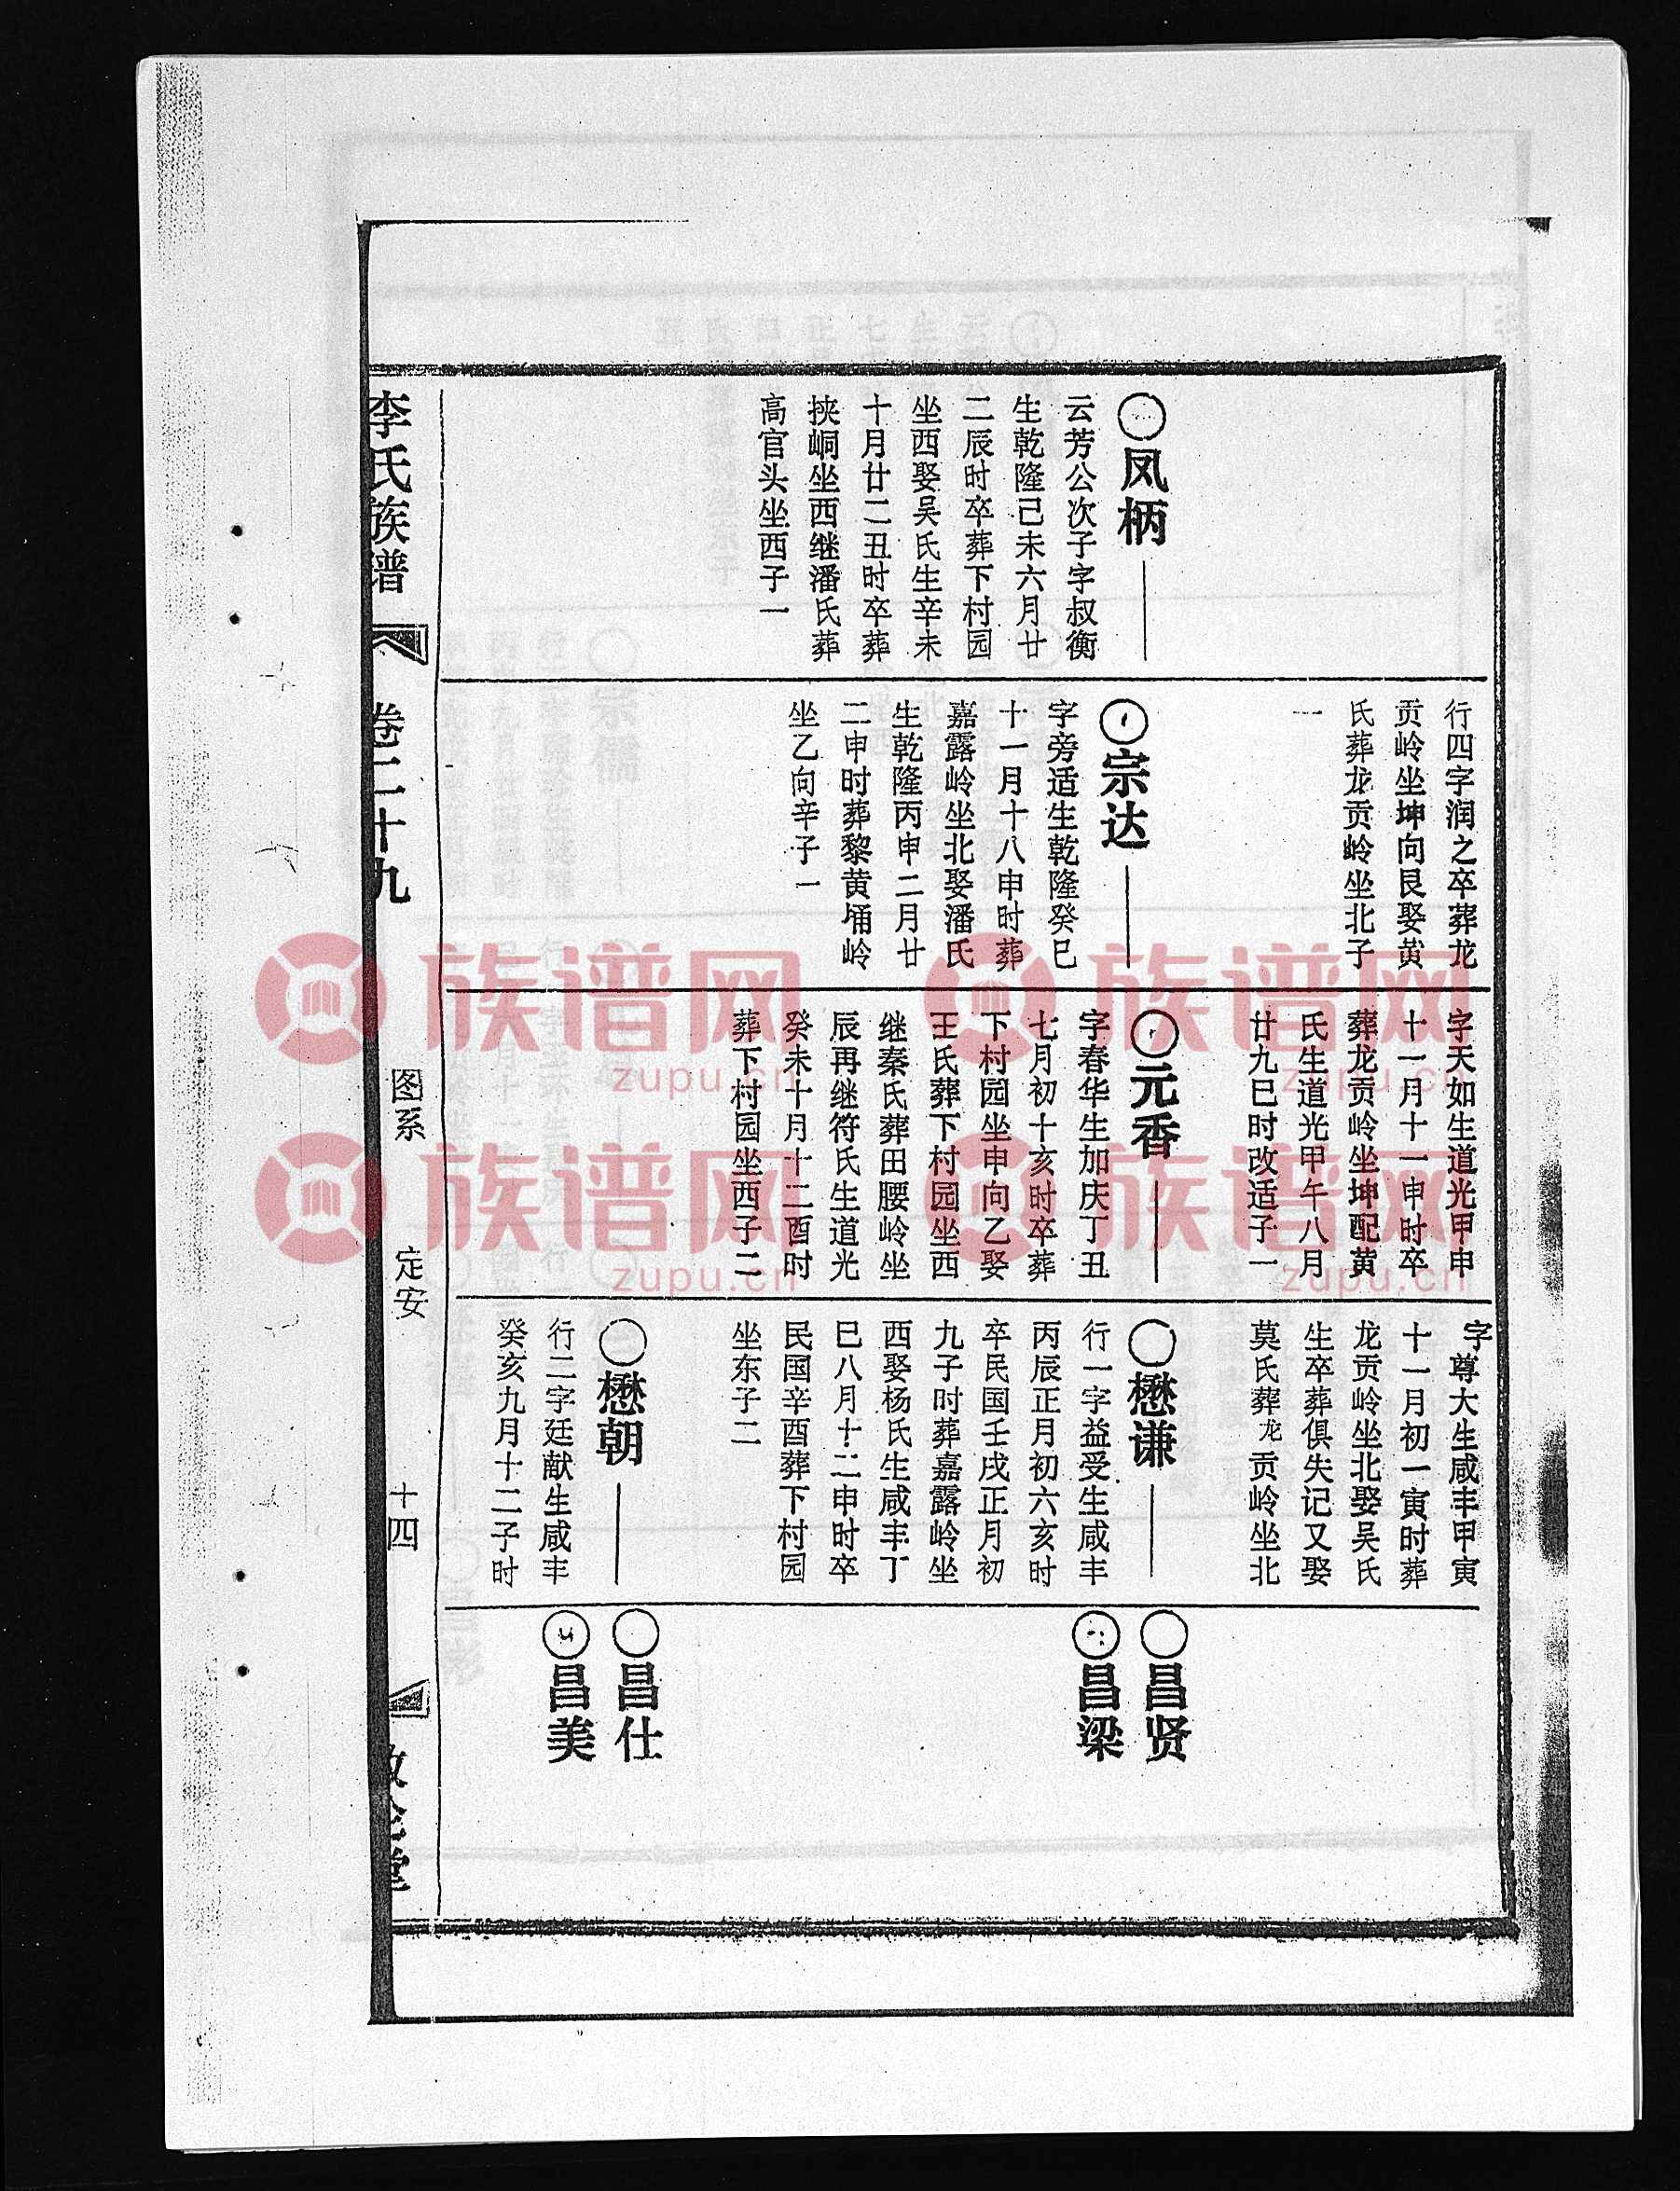 凤柄
云芳公次子字叔衡
生乾隆己未六月廿
二辰时卒葬下村园
坐西娶吴氏生辛未
十月廿二丑时卒葬
挟峒坐西继潘氏葬
高官头坐西子一
行四字润之卒葬龙
贡岭坐坤向艮娶黄
氏葬龙贡岭坐北子
一
宗达
字旁适生乾隆癸巳
十一月十八申时葬
嘉露岭坐北娶潘氏
生乾隆丙申二月廿
二申时葬黎黄埇岭
坐乙向辛子一
字天如生道光甲申
十一月十一申时卒
葬龙贡岭坐坤配黄
氏生道光甲午八月
廿九巳时改适子一
元香
字春华生加庆丁丑
七月初十亥时卒葬
下村园坐申向乙娶
王氏葬下村园坐西
继秦氏葬田腰岭坐
辰再继符氏生道光
癸未十月十二酉时
葬下村园坐西子二
字尊大生咸丰甲寅
十一月初一寅时葬
龙贡岭坐北娶吴氏
生卒葬俱失记又娶
莫氏葬龙贡岭坐北
懋谦
行一字益受生咸丰
丙辰正月初六亥时
卒民国壬戌正月初
九子时葬嘉露岭坐
西娶杨氏生咸丰丁
巳八月十二申时卒
民国辛酉葬下村园
坐东子二
懋朝
行二字廷献生咸丰
癸亥九月十二子时
昌贤
昌梁
昌仕
昌美
李氏族谱
卷二十九
图系
定安
十四
敦伦堂
族谱网
zupu.cn
族谱网
zupu.cn
族谱网
zupu.cn
族谱网
zupu.cn